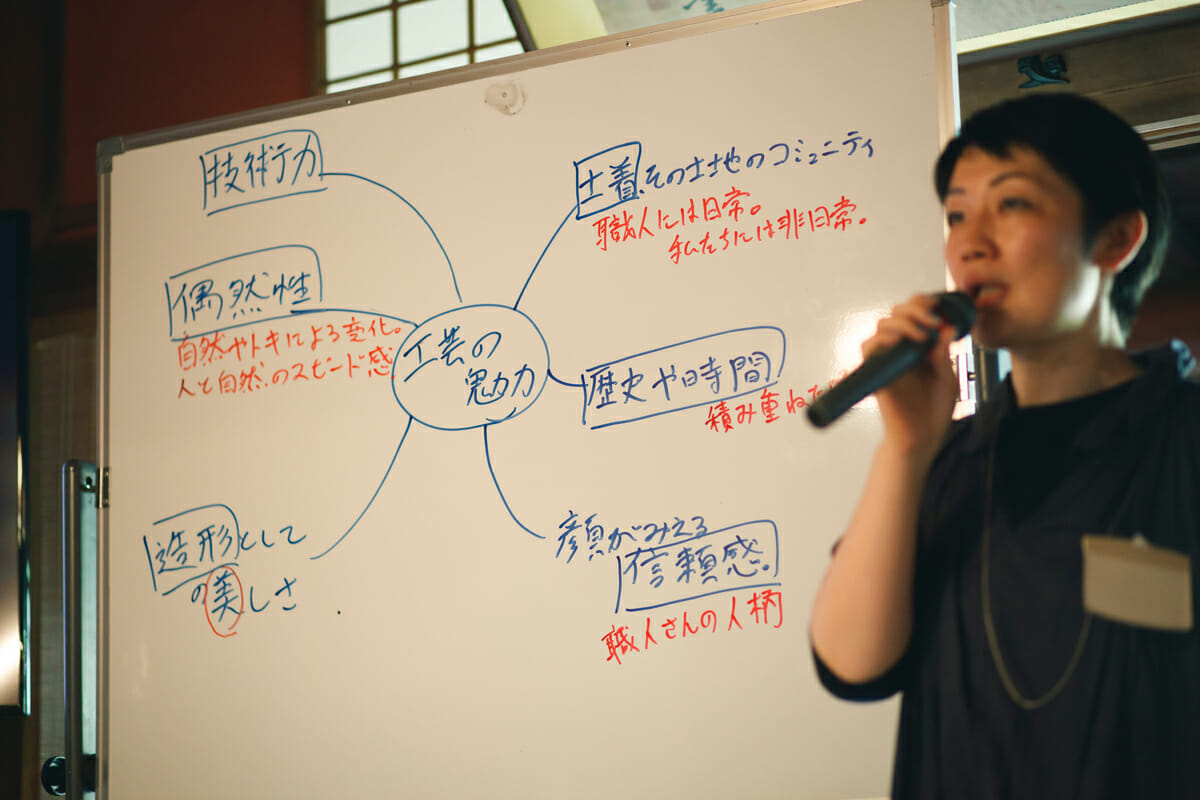 技術力
偶然性
自然やトキによる変化。
人と自然のスピード感
工芸の
魅力
造形として
の美しさ
土着、その土地のコミュニティ
職人には日常。
私たちには非日常。
歴史や時間
積み重ね
顔がみえる
信頼感。
職人さんの人柄